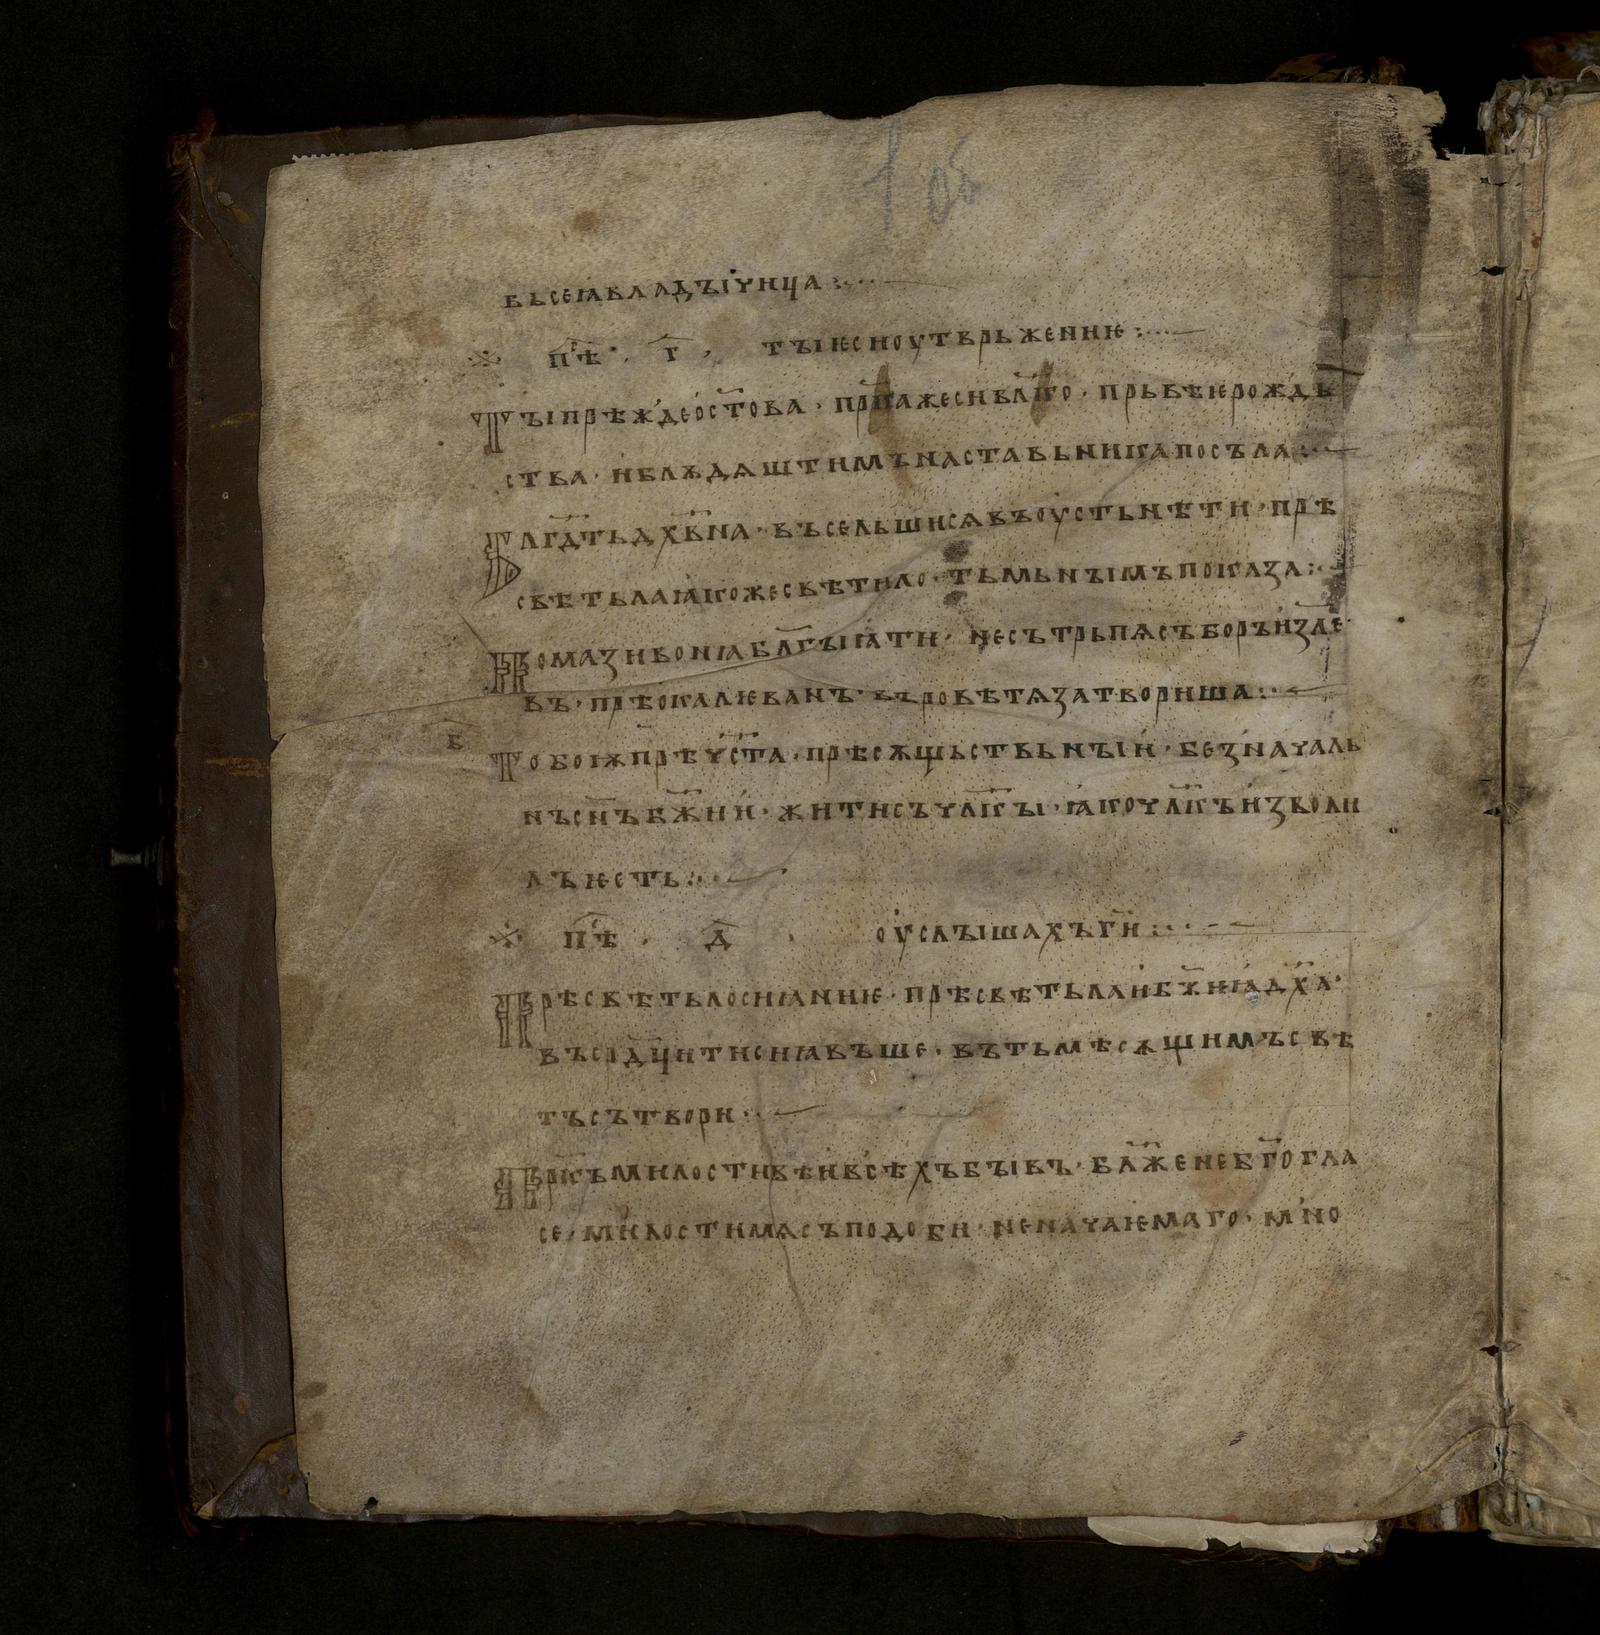 1 об
вьсеꙗвладъічица :···—
※ пѣ · г҃ · тъіѥсиоутврьжениѥ :···—
Тъіпрѣждеѡ҇става · пр҃ркажесиѥл҃иго · прьвѣѥрождь
ства · иблѫдѧштимънаставьникапосъла :·—
Блг҃дтьдх҃вна · въсельшисѧвъоустьнѣти · прѣ
свѣтьлаꙗкожесвѣтило · тьмьнъімъпоказа :·—
Номазибониꙗбл҃гъіꙗти · несътрьпѧсъборъиꙁле
въ · прѣокалѥванъ · въровѣтѧꙁатвориша :·—
в҃
Тобоѭпрѣч҃ста · прѣсѫщьствьнъіи · беꙁначаль
нъсн҃ъбж҃ии · житисъчл҃къі · ꙗкочл҃къиꙁволи
лъѥсть :·—
※ пѣ · д҃ · оуслъішахъги҃ :···—
Прѣсвѣтьлосиꙗниѥ · прѣсвѣтьлаиб҃жиꙗдх҃а ·
въсрд҃цитисиꙗвъше · вътьмѣсѫщимъсвѣ
тъсътвори :·—
Пр҃ркъмилостивѣивсѣхъбъівъ · блж҃енебг҃огла
се · милостимѧсъподоби · неначаѥмаго · мно